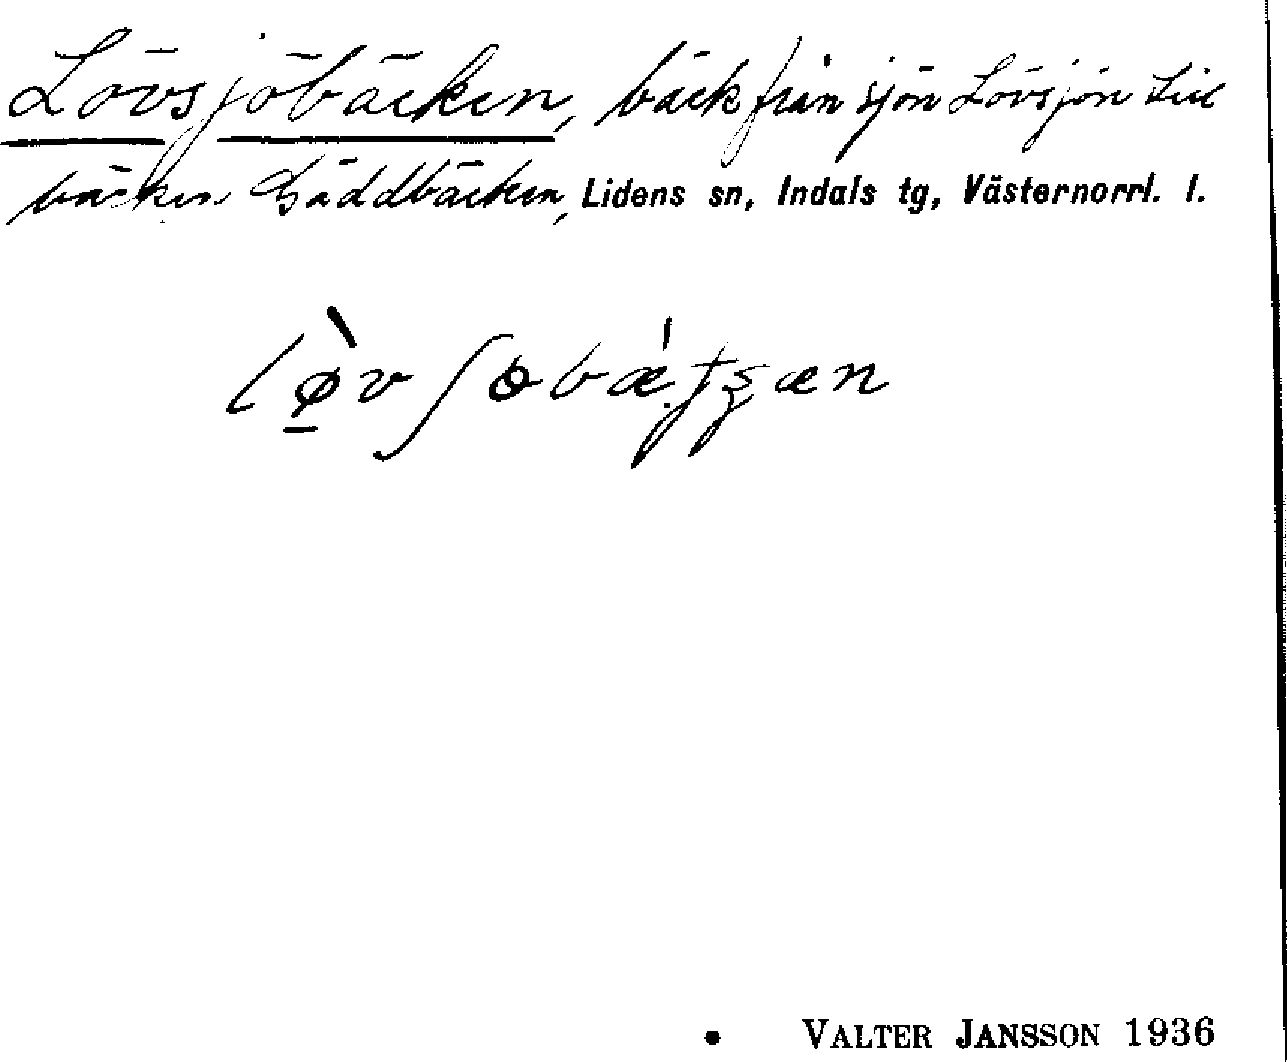 Lövsjöbäcken, bäck från sjön Lövsjön till
bäcken Gäddbäcken, Lidens sn, Indals tg, Västernorrl. l.
• VALTER JANSSON 1936